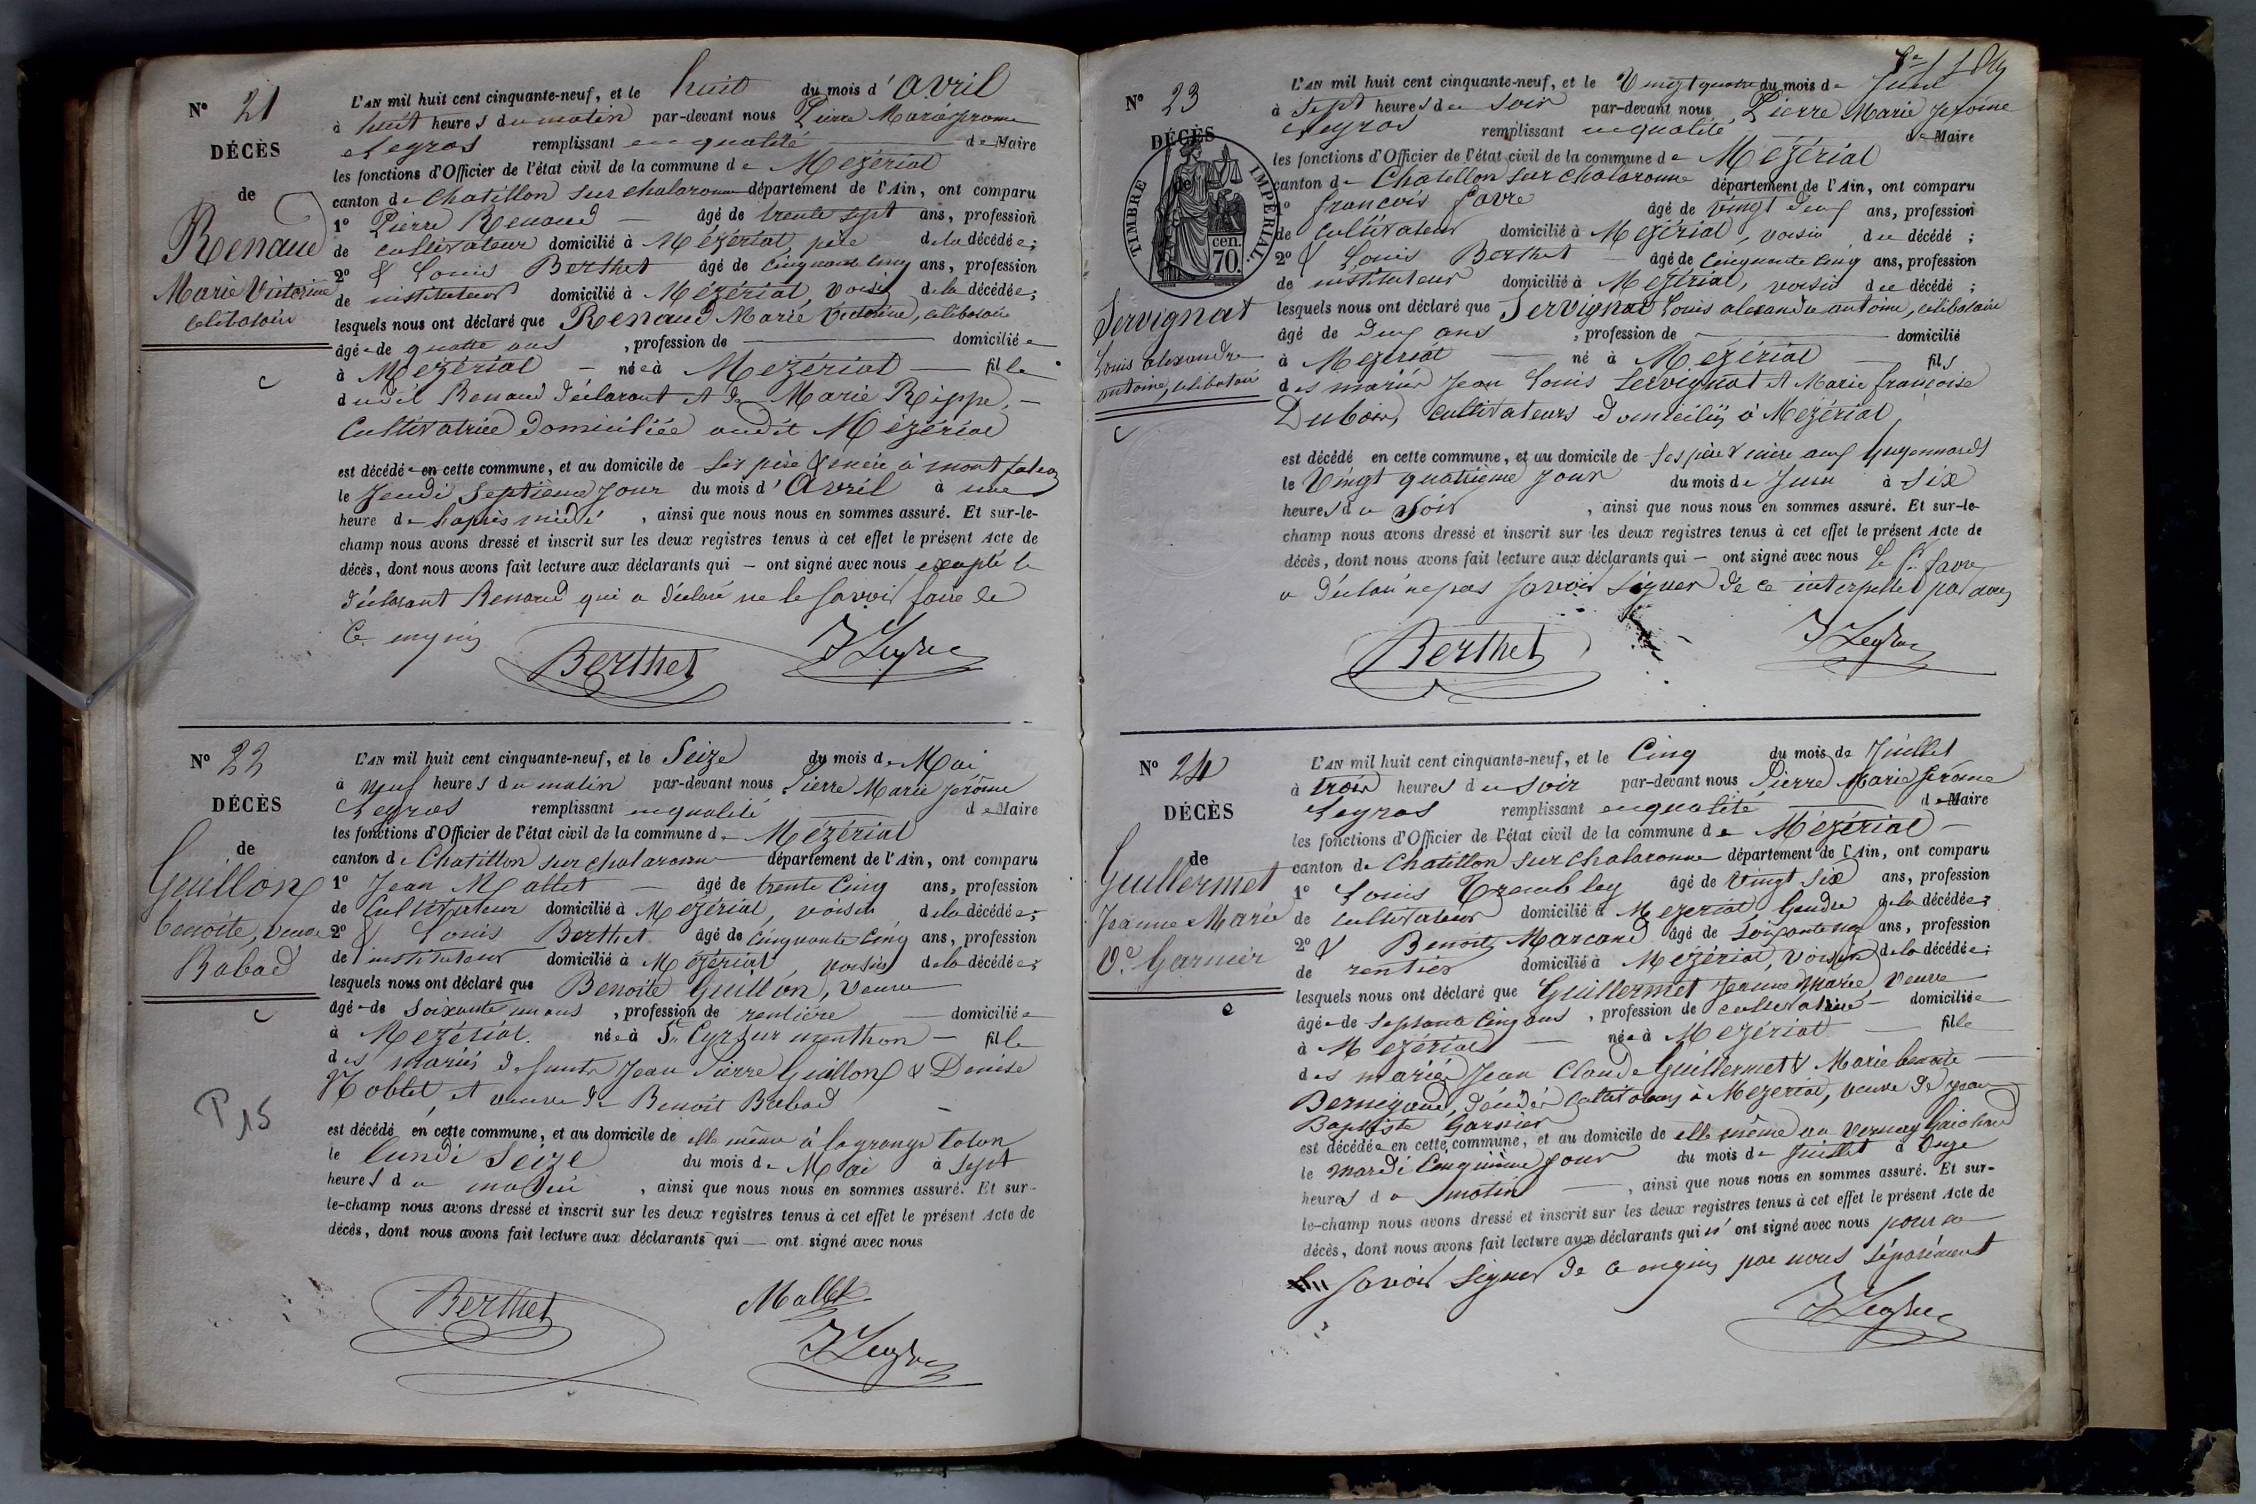 N° 21
DÉCÈS
de
Renaud
Marie Victorine
celibataire
L'AN mil huit cent cinquante-neuf, et le huit du mois d'avril
à huit heures du matin par-devant nous Pierre Marie Jérome
Legras remplissant en qualité de Maire
les fonctions d'Officier de l'état civil de la commune de Mézériat
canton de Chatillon sur chalaronne département de l'Ain, ont comparu
1° Pierre Renaud âgé de trente sept ans, profession
de cultivateur domicilié à Mézériat, père de la décédée;
2° & Louis Berthet âgé de cinquante cinq ans, profession
de instituteur domicilié à Mézériat, voisin de la décédée;
lesquels nous ont déclaré que Renaud Marie Victorine, celibataire
âgée de quatre ans, profession de domiciliée
à Mézériat - née à Mézériat fille
dudit Renaud déclarant et de Marie Rippe, -
Cultivatrice domiciliée audit Mézériat
est décédée en cette commune, et au domicile de ses père & mère à mont
le Jeudi Septième jour du mois d'Avril à une
heure de l'après midi, ainsi que nous nous en sommes assuré. Et sur-le-
champ nous avons dressé et inscrit sur les deux registres tenus à cet effet le présent Acte de
décès, dont nous avons fait lecture aux déclarants qui - ont signé avec nous excepté le
déclarant Renaud qui a déclaré ne le savoir faire de
ce enquis
Berthet J Legras
N° 22
DÉCÈS
de
Guillon
benoite, veuve
Rabad
P 15
L'AN mil huit cent cinquante-neuf, et le Seize du mois de Mai
à neuf heures du matin par-devant nous Pierre Marie Jérôme
Legras remplissant en qualité de Maire
les fonctions d'Officier de l'état civil de la commune de Mézériat
canton de Chatillon sur chalaronne département de l'Ain, ont comparu
1° Jean Mallet âgé de trente cinq ans, profession
de Cultivateur domicilié à Mézériat, voisin de la décédée;
2° & Louis Berthet âgé de cinquante cinq ans, profession
de instituteur domicilié à Mézériat, voisin de la décédée;
lesquels nous ont déclaré que Benoite Guillon, veuve
âgée de soixante un ans, profession de rentière domiciliée
à Mézériat. née à St Cyr sur menthon - fille
des mariés defunts Jean Pierre Guillon & Denise
Noblet, et veuve de Benoit Rabad
est décédé en cette commune, et au domicile de elle même à la grange
le lundi Seize du mois de Mai à Sept
heures du matin, ainsi que nous nous en sommes assuré. Et sur-
le-champ nous avons dressé et inscrit sur les deux registres tenus à cet effet le présent Acte de
décès, dont nous avons fait lecture aux déclarants qui - ont signé avec nous
Berthet Mallet
J Legras
N° 23
DÉCÈS
de
TIMBRE IMPÉRIAL.
cen. 70.
Servignat
Louis alexandre
antoine, celibataire
L'AN mil huit cent cinquante-neuf, et le Vingt quatre du mois de Juin
à Sept heures du soir par-devant nous Pierre Marie Jérôme
Legras remplissant en qualité de Maire
les fonctions d'Officier de l'état civil de la commune de Mézériat
canton de Chatillon sur chalaronne département de l'Ain, ont comparu
1° françois favre âgé de vingt deux ans, profession
de Cultivateur domicilié à Mézériat, voisin du décédé;
2° & Louis Berthet âgé de cinquante cinq ans, profession
de instituteur domicilié à Mézériat, voisin du décédé;
lesquels nous ont déclaré que Servignat Louis alexandre antoine, celibataire
âgé de deux ans, profession de domicilié
à Mézériat né à Mézériat fils
des mariés Jean Louis Servignat et Marie françoise
Dubois, cultivateurs domiciliés à Mézériat,
est décédé en cette commune, et au domicile de ses père & mère aux Guyennards
le Vingt quatrième jour du mois de Juin à six
heures du Soir, ainsi que nous nous en sommes assuré. Et sur-le-
champ nous avons dressé et inscrit sur les deux registres tenus à cet effet le présent Acte de
décès, dont nous avons fait lecture aux déclarants qui - ont signé avec nous le Sr favre
a déclaré ne pas savoir signer de ce interpellé par nous
Berthet J Legras
N° 24
DÉCÈS
de
Guillermet
Jeanne Marie
Ve Garnier
L'AN mil huit cent cinquante-neuf, et le Cinq du mois de Juillet
à trois heures du soir par-devant nous Pierre Marie Jérôme
Legras remplissant en qualité de Maire
les fonctions d'Officier de l'état civil de la commune de Mézériat
canton de Chatillon sur chalaronne département de l'Ain, ont comparu
1° Louis Trembley âgé de vingt six ans, profession
de cultivateur domicilié à Mézériat, Gendre de la décédée;
2° & Benoit Marcand âgé de soixante ans, profession
de rentier domicilié à Mézériat, voisin de la décédée;
lesquels nous ont déclaré que Guillermet Jeanne Marie, veuve
âgée de septante cinq ans, profession de cultivatrice domiciliée
à Mézériat née à Mézériat fille
des mariés Jean Claude Guillermet & Marie benoite
Bernigaud, décédés cultivateurs à Mézériat, veuve de jean
Baptiste Garnier
est décédée en cette commune, et au domicile de elle même au Vernay
le Mardi Cinquième jour du mois de Juillet à Onze
heures du matin, ainsi que nous nous en sommes assuré. Et sur-
le-champ nous avons dressé et inscrit sur les deux registres tenus à cet effet le présent Acte de
décès, dont nous avons fait lecture aux déclarants qui n'ont signé avec nous pour ne
savoir signer de ce enquis par nous séparément
J Legras